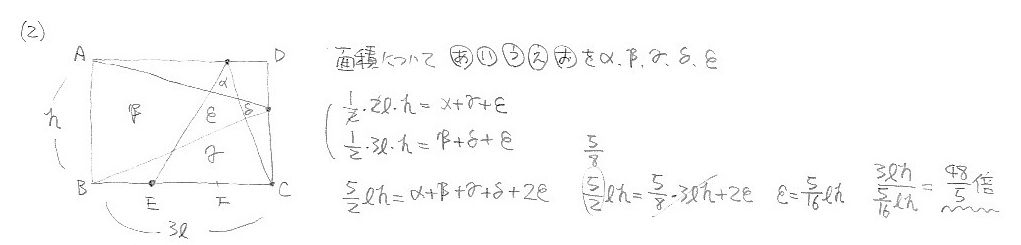 (2)
A D
h
α
β ε δ
γ
B E F C
3l
面積について あ い う え お を α, β, γ, δ, ε
1/2・2l・h = α+γ+ε
1/2・3l・h = β+δ+ε
5/2 lh = α+β+γ+δ+2ε
5/8
5/2 lh = 5/8・3lh+2ε ε = 5/16 lh 3lh / 5/16 lh = 48/5 倍